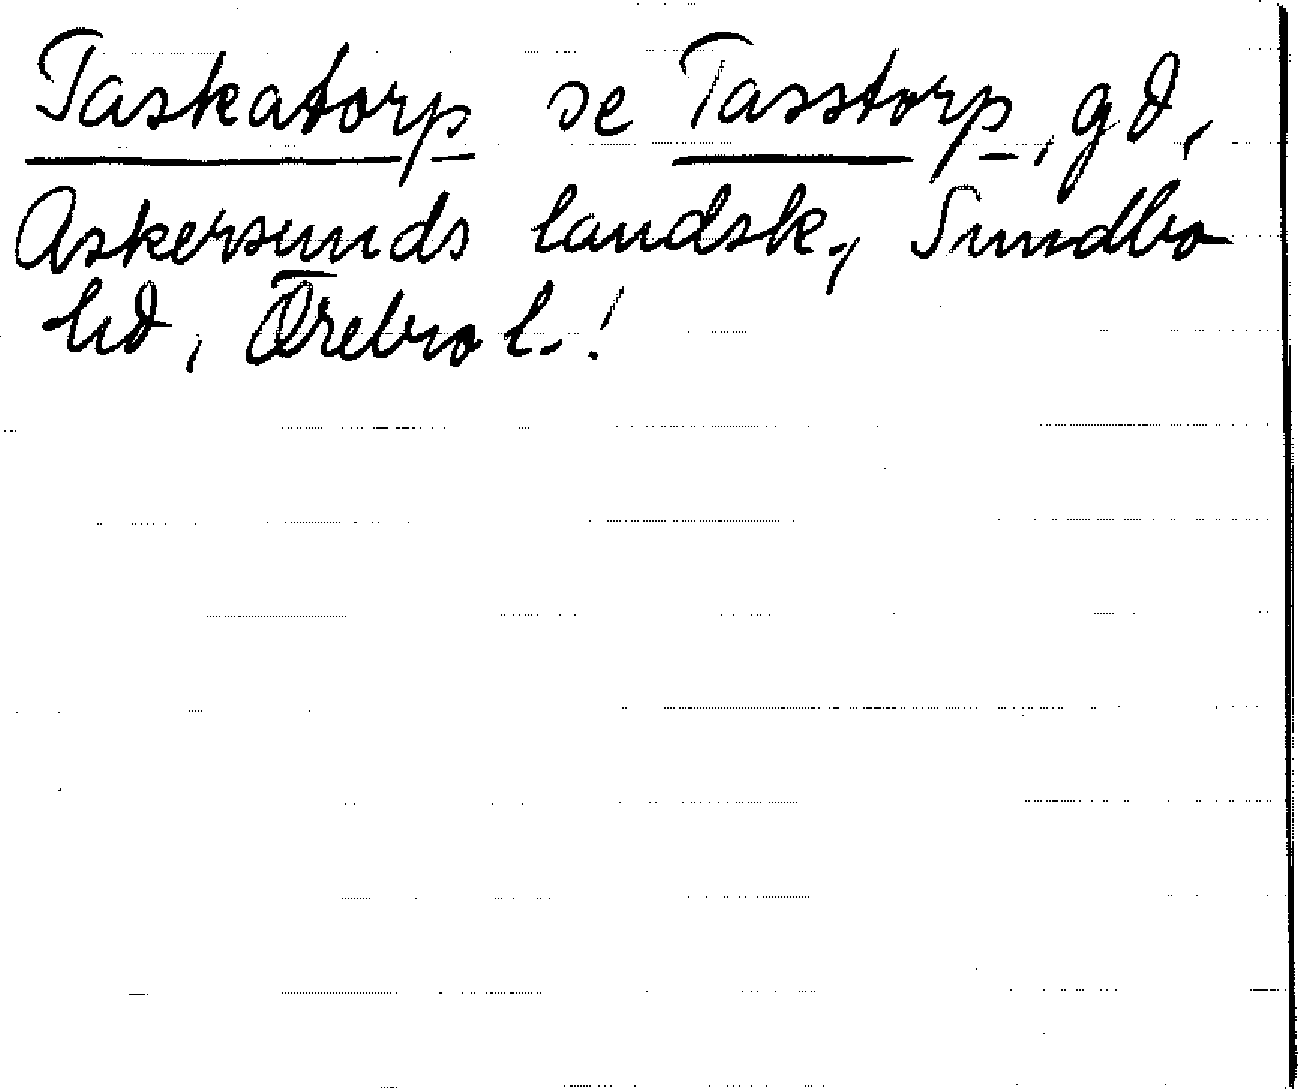 Taskatorp se Tasstorp, gd,
Askersunds landsk., Sundbo
hd, Örebro l.!